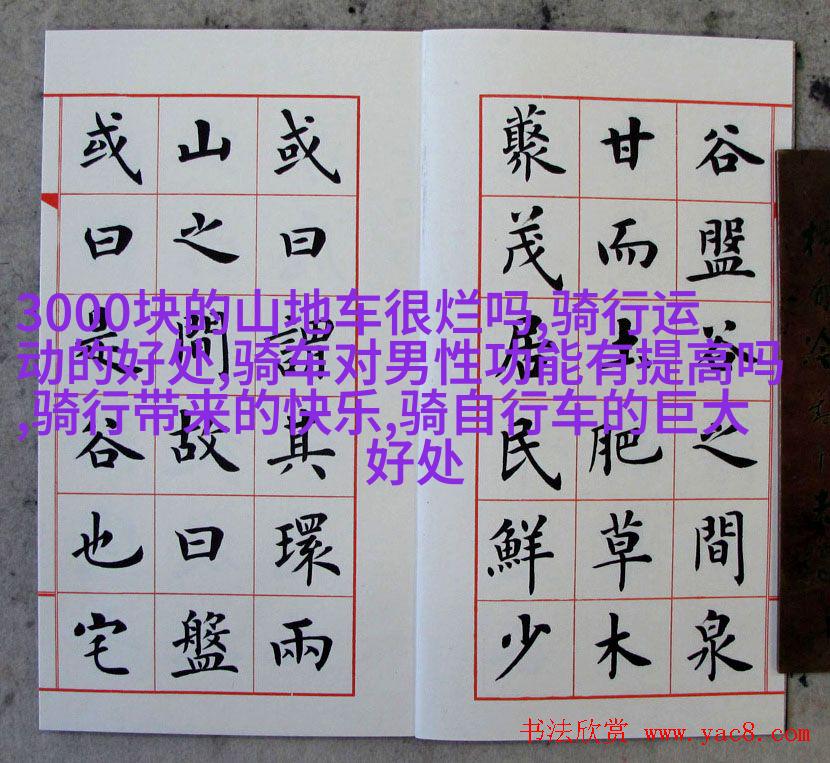 谷盤谷之間泉
甘而土肥草木
藂茂居民鮮少
或曰謂其環兩
山之間故曰盤
或曰是谷也宅
3000块的山地车很烂吗,骑行运
动的好处,骑车对男性功能有提高吗
,骑行带来的快乐,骑自行车的巨大
好处
书法欣赏 www.yac8.com